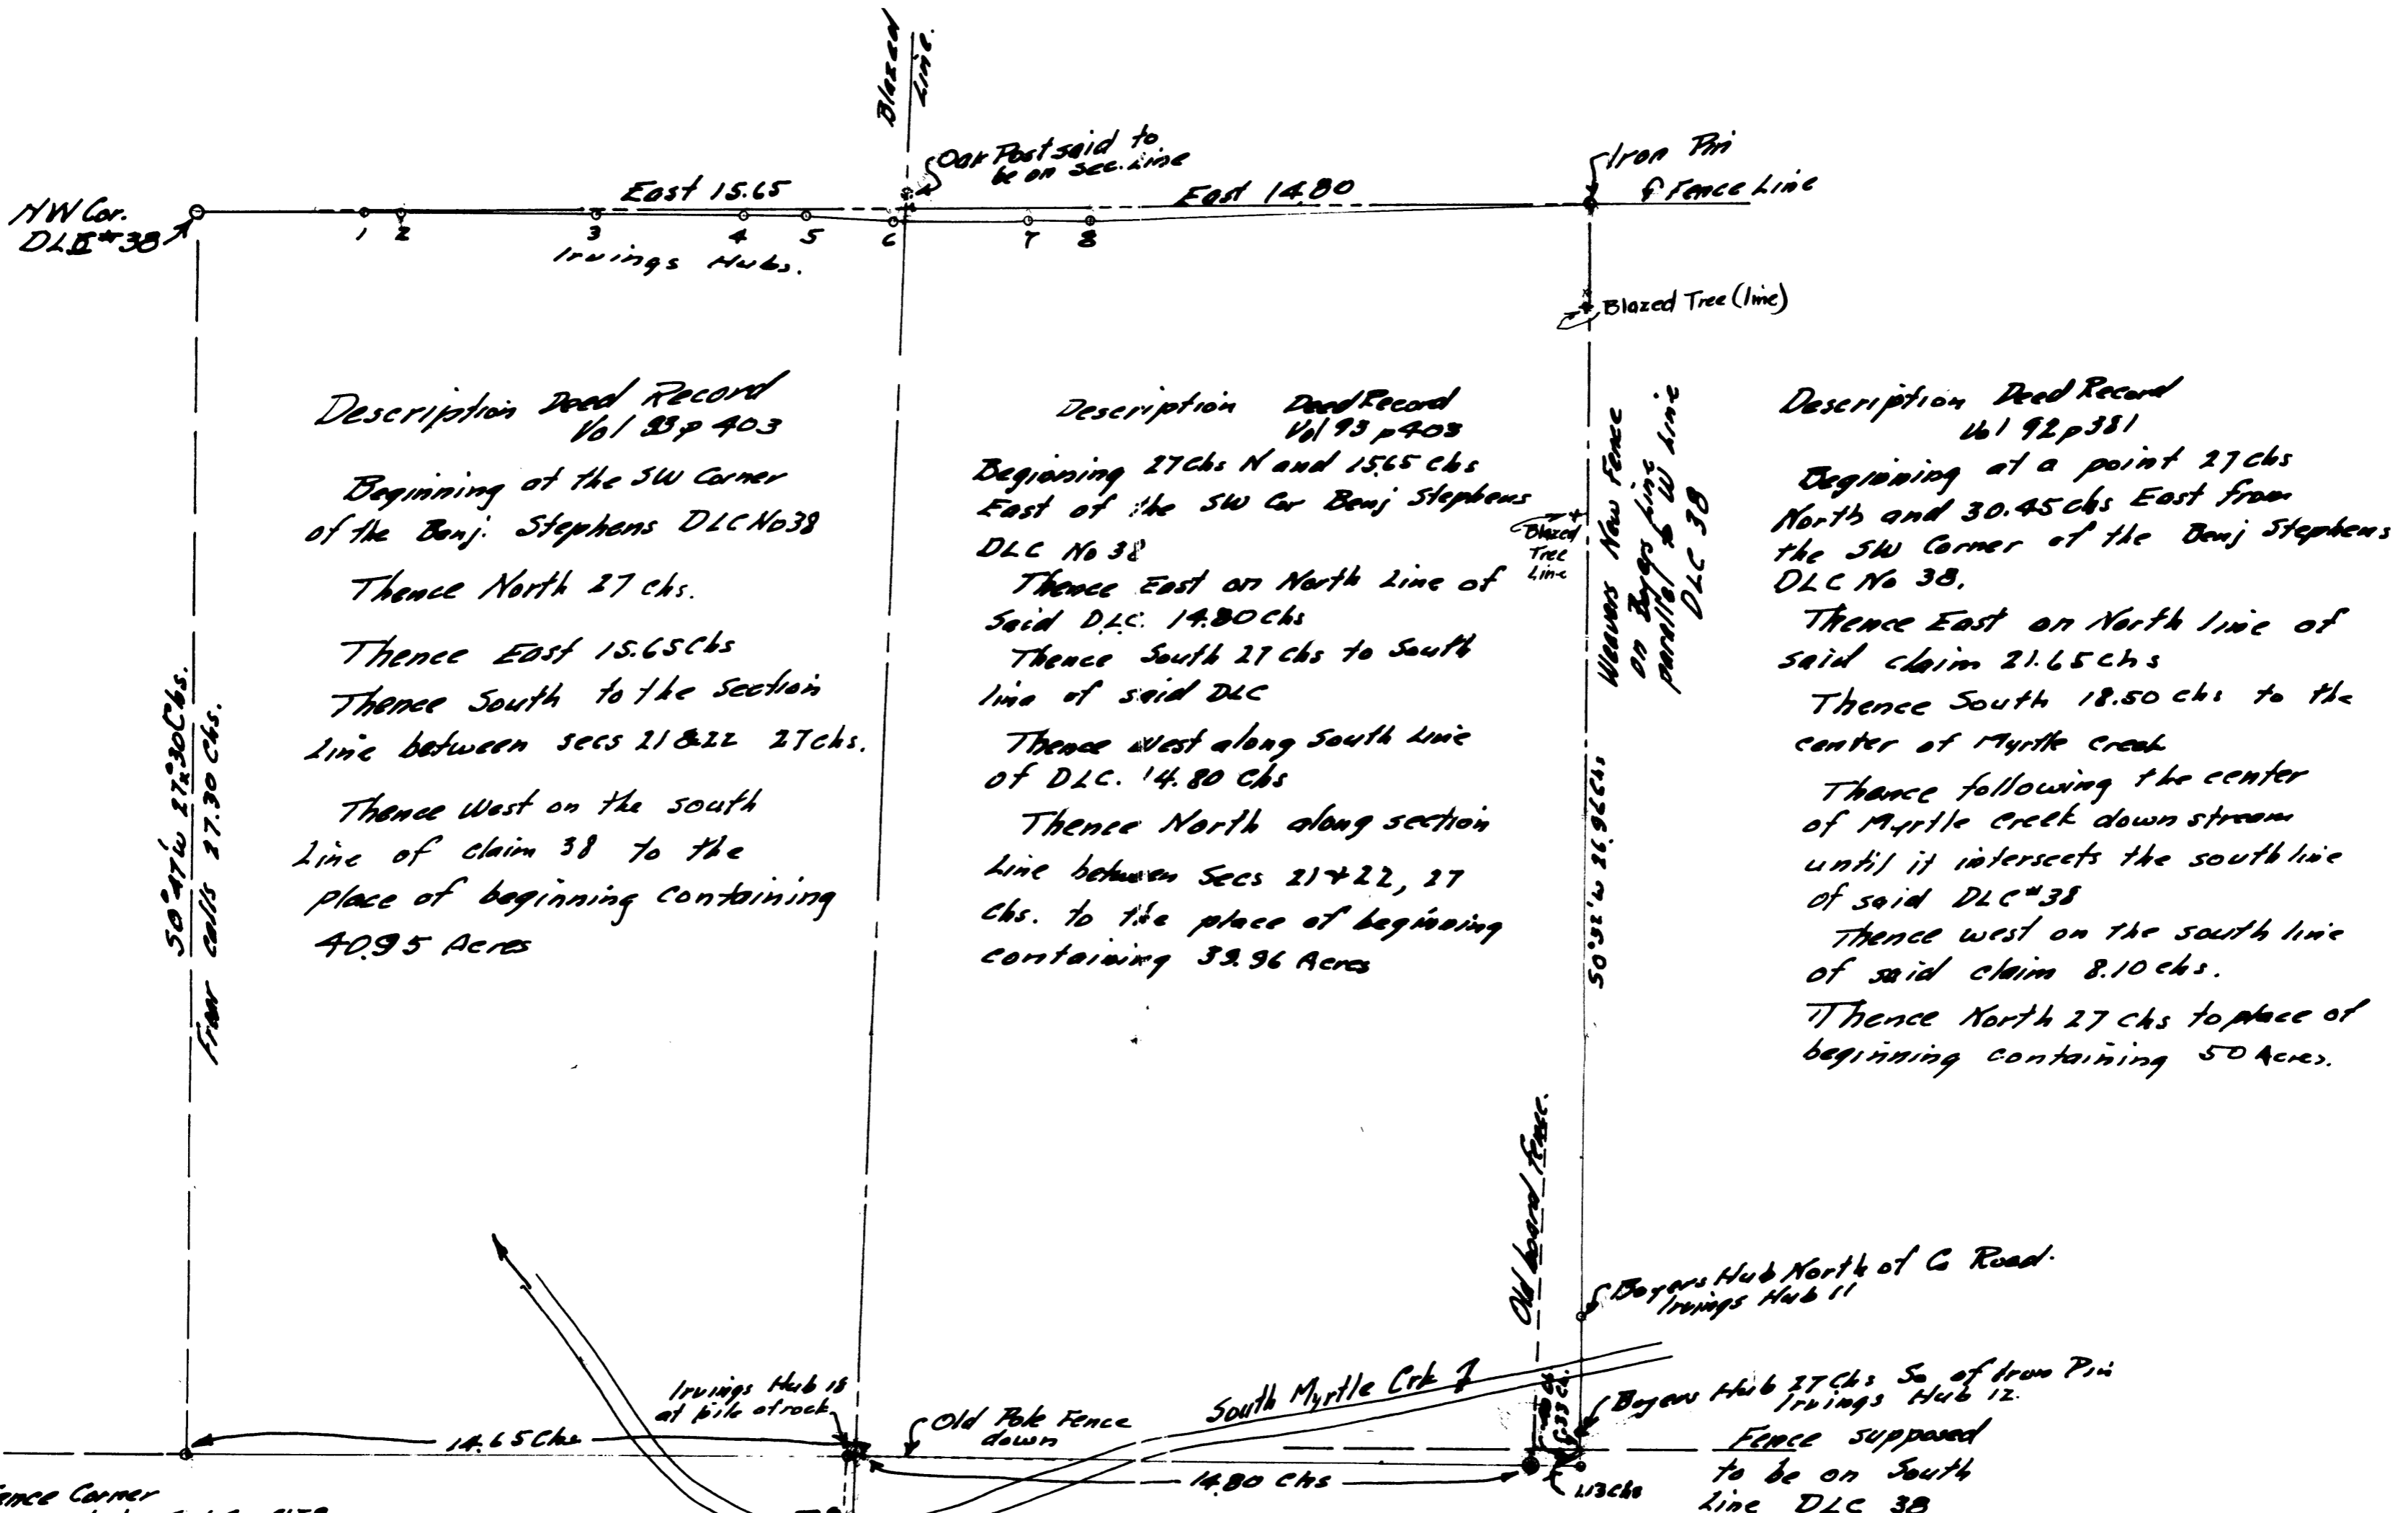 Blazed
Line.
Oak Post said to
be on sec. Line
Iron Pin
Fence Line
NW Cor.
DLC #38
East 15.65
East 14.80
1 2 3 4 5 6 7 8
Irvings Hubs.
Blazed Tree (line)
Description Deed Record
Vol 93 p 403
Beginning at the SW Corner
of the Benj. Stephens DLC No38
Thence North 27 chs.
Thence East 15.65 chs
Thence South to the Section
Line between secs 21 & 22 27 chs.
Thence West on the south
Line of claim 38 to the
place of beginning containing
40.95 Acres
Description Deed Record
Vol 93 p 403
Beginning 27 chs N and 15.65 chs
East of the SW Cor Benj Stephens
DLC No 38
Thence East on North Line of
Said D.L.C. 14.80 chs
Thence South 27 chs to South
line of said DLC
Thence West along South Line
of DLC. 14.80 chs
Thence North along section
Line between Secs 21 + 22, 27
chs. to the place of beginning
containing 39.96 Acres
Blazed
Tree
Line
Weavers New Fence
on Boyers Line
parallel to W Line
DLC 38
Description Deed Record
Vol 92 p 381
Beginning at a point 27 chs
North and 30.45 chs East from
the SW Corner of the Benj Stephens
DLC No 38.
Thence East on North line of
said claim 21.65 chs
Thence South 18.50 chs to the
center of Myrtle Creek
Thence following the center
of Myrtle Creek down stream
until it intersects the south line
of said DLC #38
Thence west on the south line
of said claim 8.10 chs.
Thence North 27 chs to place of
beginning containing 50 Acres.
S0°47'W 27.30 Chs.
calls 27.30 Chs.
S0°32'W 26.96 Chs
Old board Fence.
Boyers Hub North of Co Road.
Irvings Hub 11
Irvings Hub 18
at pile of rock
Old Pole Fence
down
South Myrtle Crk
Boyers Hub 27 Chs So of Iron Pin
Irvings Hub 12.
14.65 Chs
14.80 Chs
1.13 chs
.33 ch.
Fence supposed
to be on South
Line DLC 38
Fence Corner